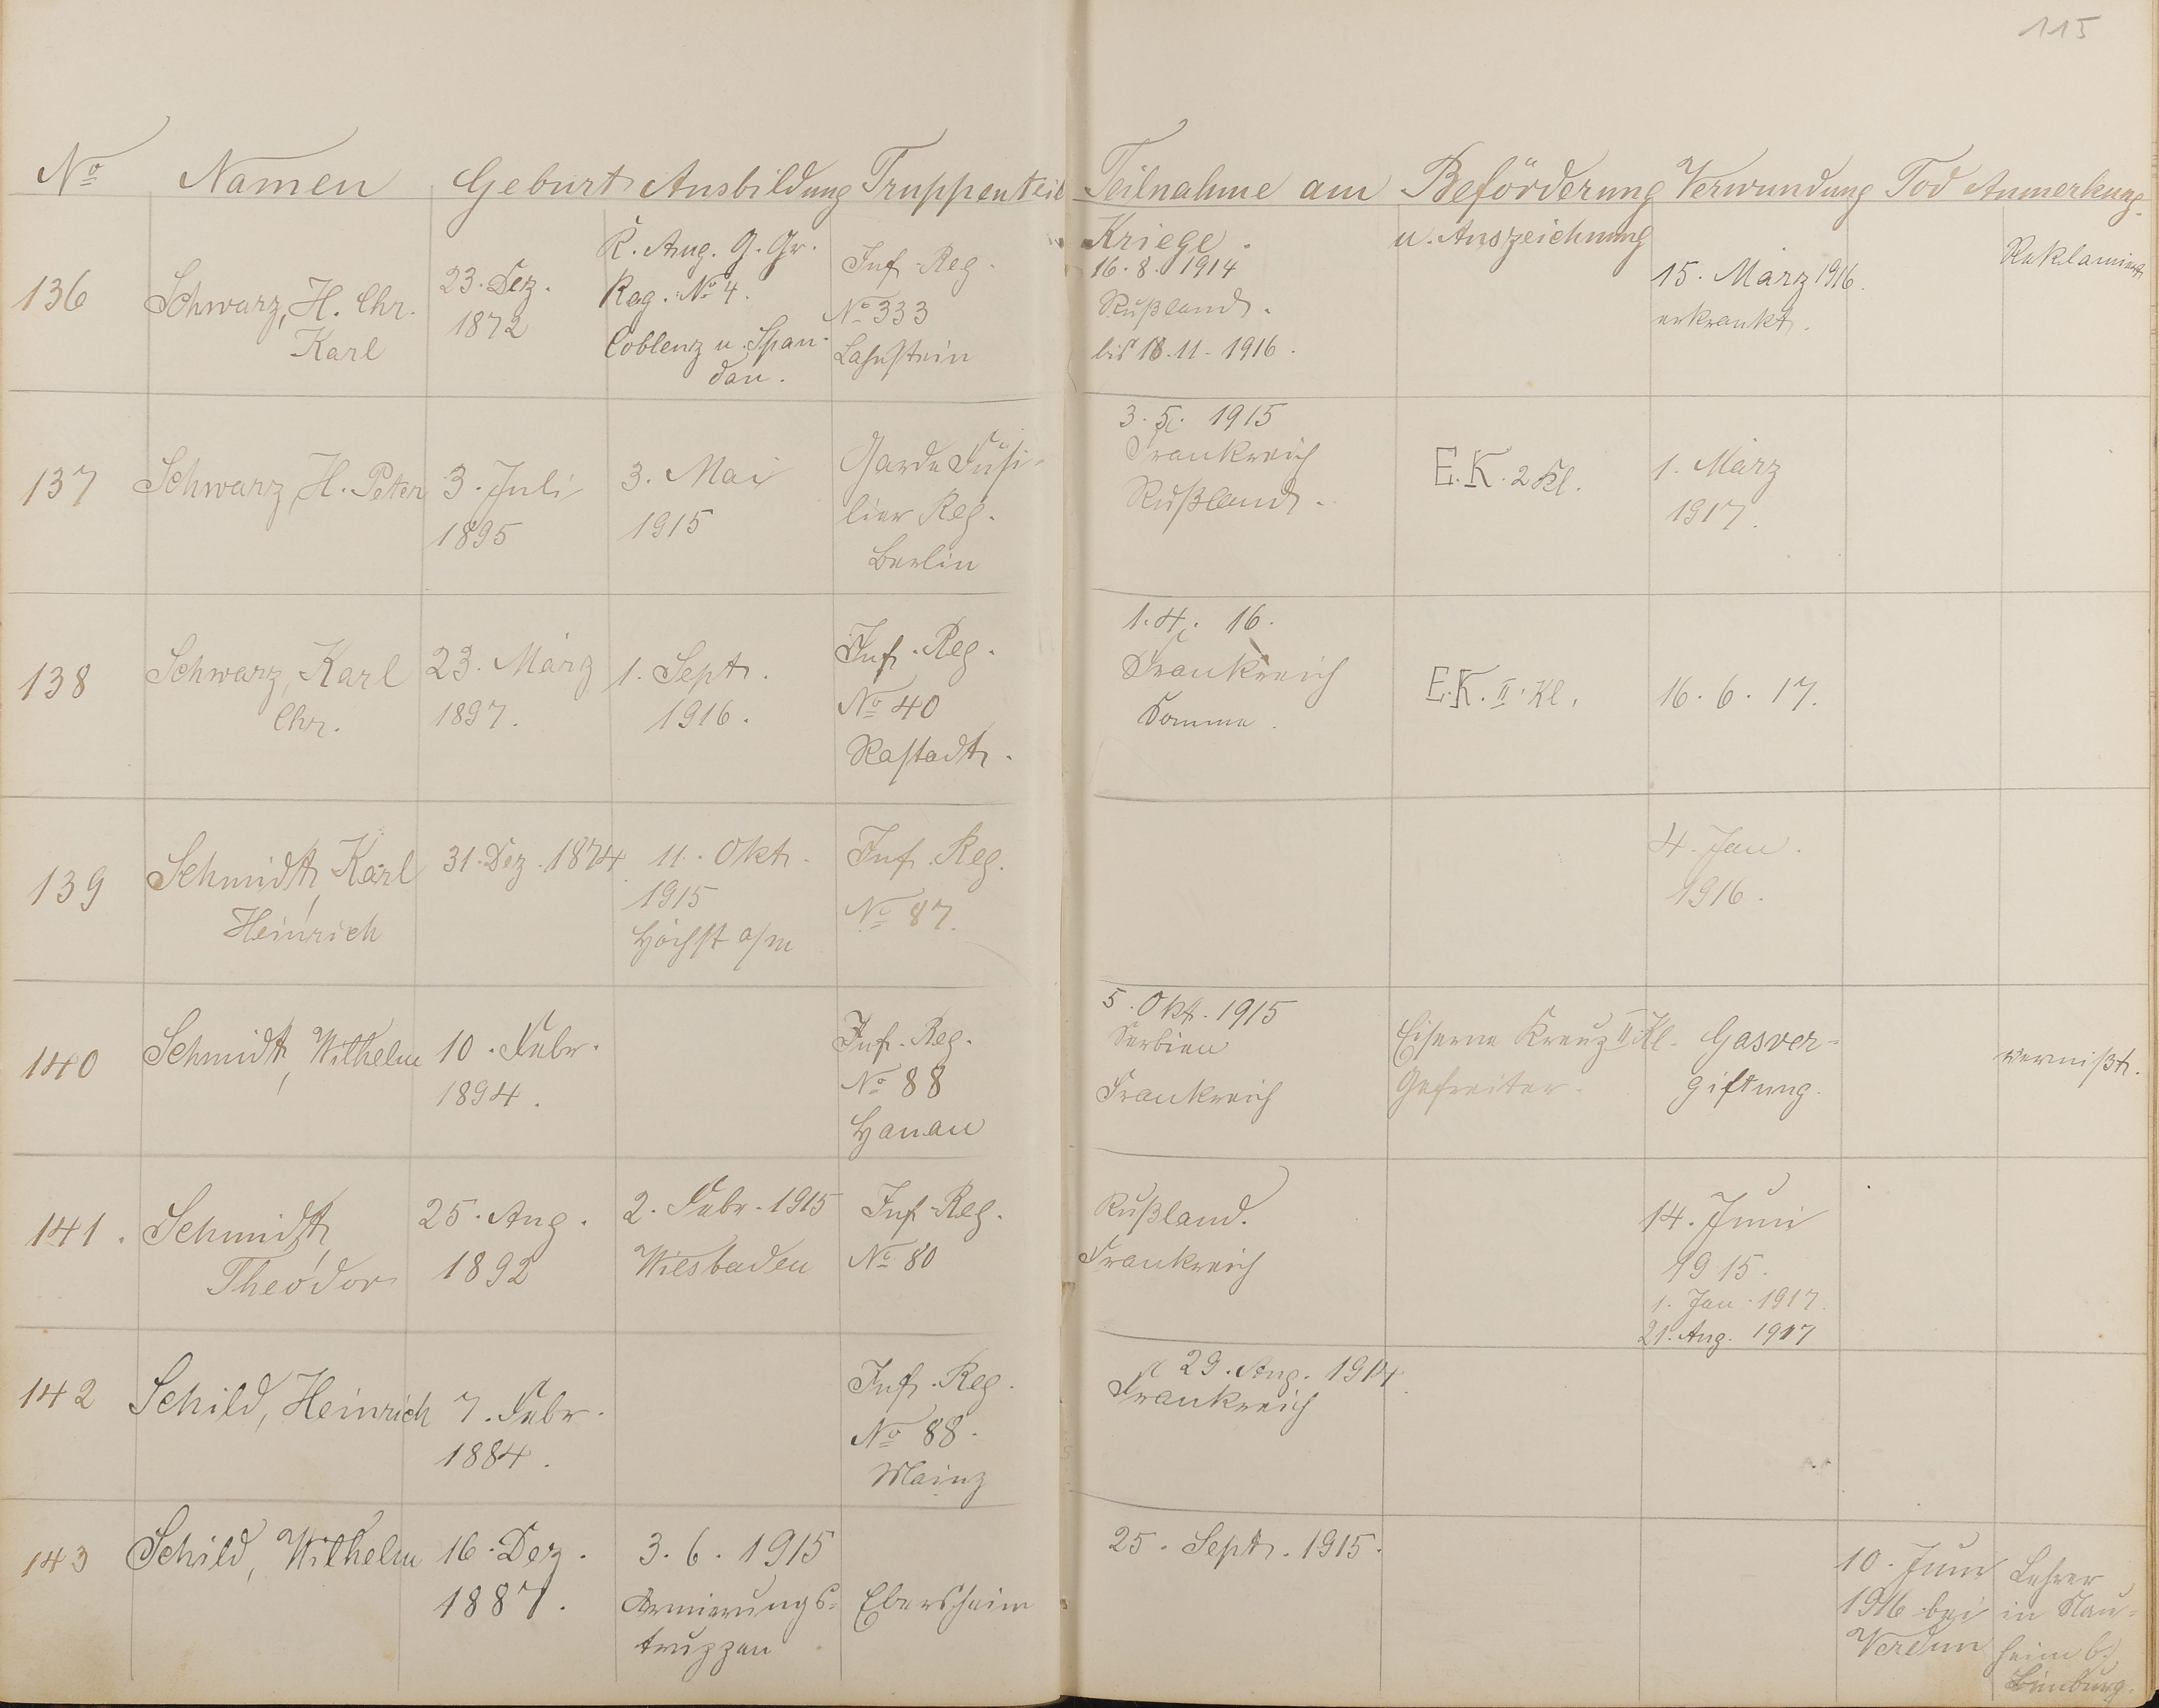 115
No Namen Geburt Ausbildung Truppenteil Teilnahme am Beförderung Verwundung Tod Anmerkung.
Kriege. u. Auszeichnung
136
Schwarz, H. Chr.
Karl
23. Dez.
1872
K. Aug. G. Gr.
Reg. No 4.
Coblenz u. Span-
dau.
Inf.-Reg.
No 333
Lahnstein
16.8.1914
Rußland.
bis 18.11.1916.
15. März 1916.
erkrankt.
Reklamiert
137
Schwarz, H. Peter
3. Juli
1895
3. Mai
1915
Garde Füsi-
lier Reg.
Berlin
3.5. 1915
Frankreich
Rußland.
E.K. 2 Kl.
1. März
1917.
138
Schwarz, Karl
Chr.
23. März
1897.
1. Sept.
1916.
Inf.-Reg.
No 40
Rastadt.
1.4. 16.
Frankreich
Somme.
E.K. II. Kl.
16.6.17.
139
Schmidt, Karl
Heinrich
31. Dez. 1874
11. Okt.
1915
Höchst a/m
Inf. Reg.
No 87.
4. Jan.
1916.
140
Schmidt, Wilhelm
10. Febr.
1894.
Inf.-Reg.
No 88
Hanau
5. Okt. 1915
Serbien
Frankreich
Eiserne Kreuz II. Kl.
Gefreiter.
Gasver-
giftung.
vermißt.
141.
Schmidt,
Theodor
25. Aug.
1892
2. Febr. 1915
Wiesbaden
Inf-Reg.
No 80
Rußland.
Frankreich
14. Juni
1915.
1. Jan. 1917.
21. Aug. 1917
142
Schild, Heinrich
7. Febr.
1884.
Inf. Reg.
No 88.
Mainz
29. Aug. 1914.
Frankreich
143
Schild, Wilhelm
16. Dez.
1887.
3.6.1915
Armierungs-
truppen
Ebersheim
25. Sept. 1915.
10. Juni
1916 bei
Verdun
Lehrer
in Nau-
heim b.
Limburg.